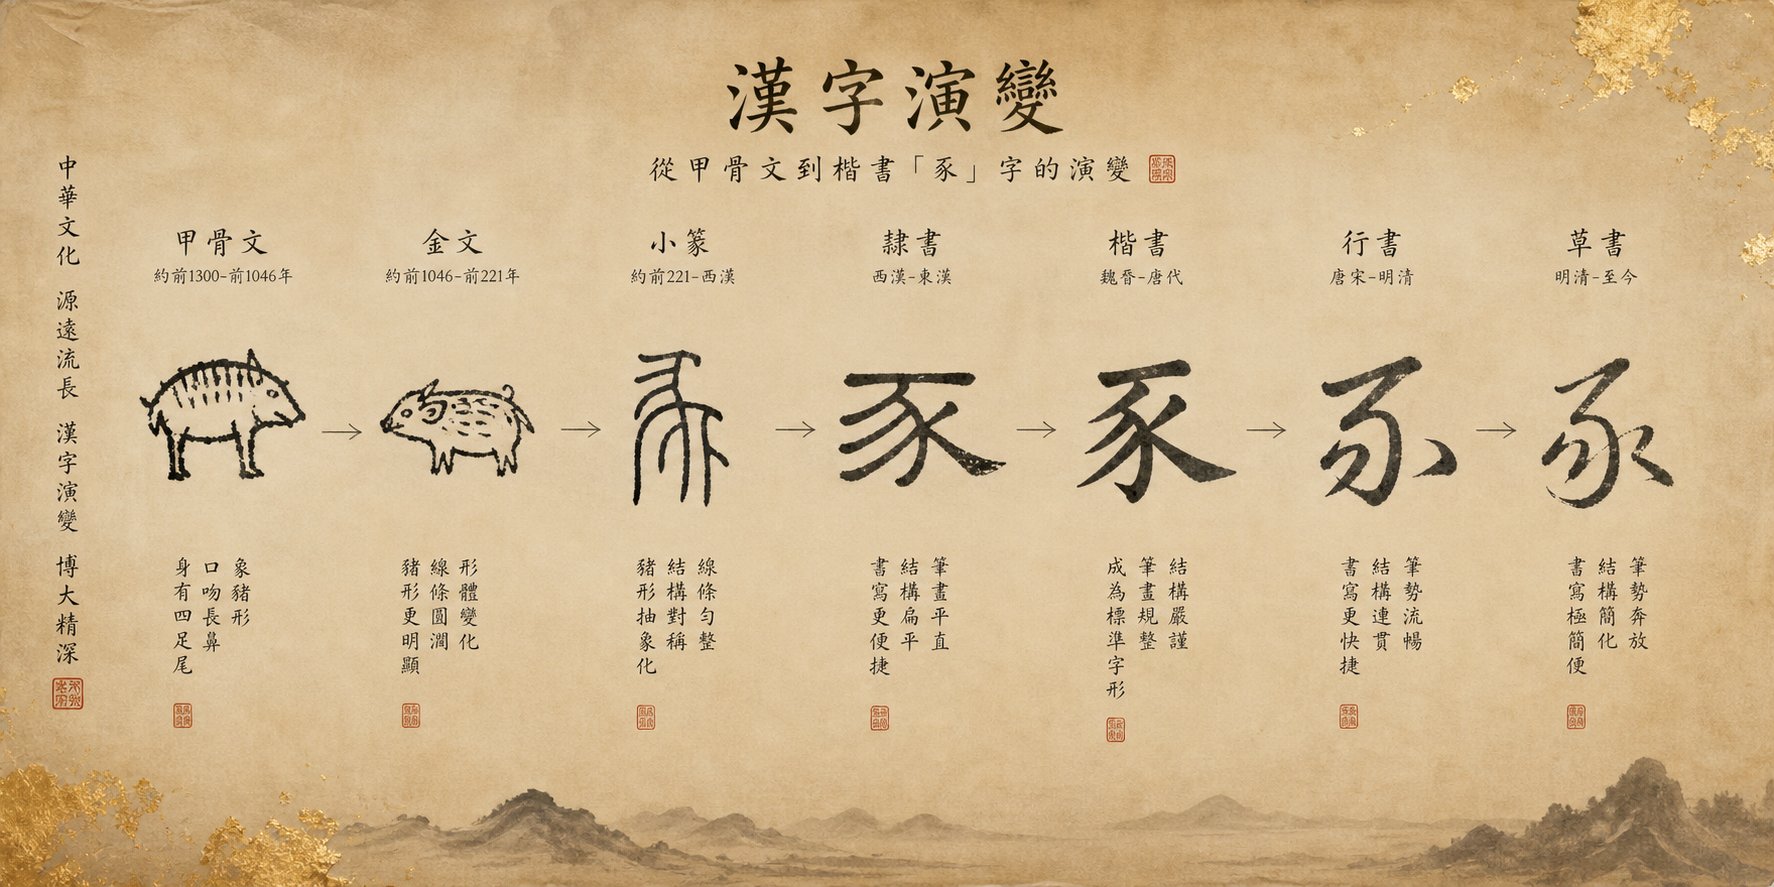 漢字演變
從甲骨文到楷書「豕」字的演變
中華文化 源遠流長 漢字演變 博大精深
甲骨文
約前1300-前1046年
象豬形
口吻長鼻
身有四足尾
金文
約前1046-前221年
形體變化
線條圓潤
豬形更明顯
小篆
約前221-西漢
線條勻整
結構對稱
豬形抽象化
隸書
西漢-東漢
豕
筆畫平直
結構扁平
書寫更便捷
楷書
魏晉-唐代
豕
結構嚴謹
筆畫規整
成為標準字形
行書
唐宋-明清
筆勢流暢
結構連貫
書寫更快捷
草書
明清-至今
豕
筆勢奔放
結構簡化
書寫極簡便